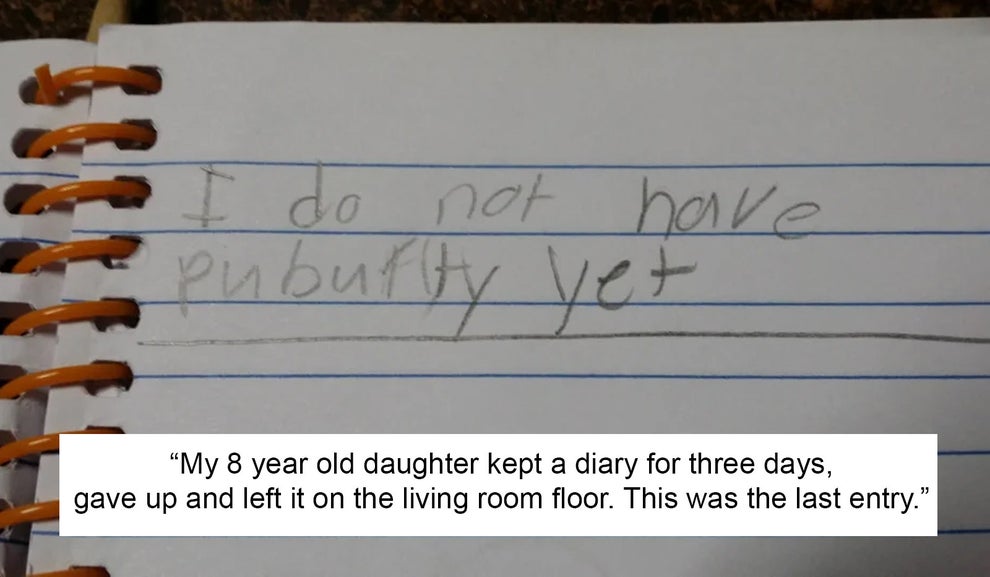 I do not have
pubuflty yet
“My 8 year old daughter kept a diary for three days,
gave up and left it on the living room floor. This was the last entry.”